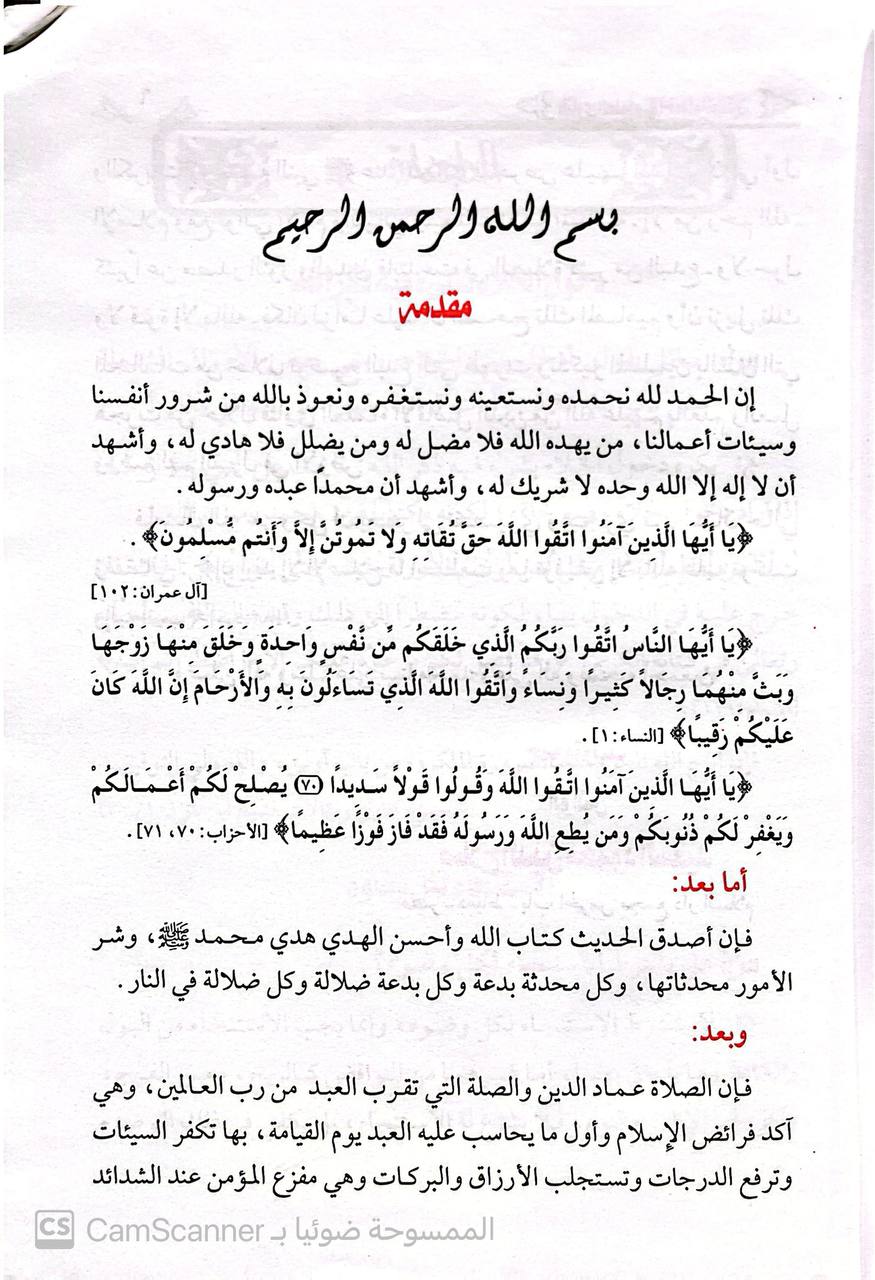 بسم الله الرحمن الرحيم
مقدمة
إن الحمد لله نحمده ونستعينه ونستغفره ونعوذ بالله من شرور أنفسنا
وسيئات أعمالنا، من يهده الله فلا مضل له ومن يضلل فلا هادي له، وأشهد
أن لا إله إلا الله وحده لا شريك له، وأشهد أن محمداً عبده ورسوله.
﴿يَا أَيُّهَا الَّذِينَ آمَنُوا اتَّقُوا اللَّهَ حَقَّ تُقَاتِهِ وَلا تَمُوتُنَّ إِلاَّ وَأَنتُم مُّسْلِمُونَ﴾.
[آل عمران: ١٠٢]
﴿يَا أَيُّهَا النَّاسُ اتَّقُوا رَبَّكُمُ الَّذِي خَلَقَكُم مِّن نَّفْسٍ وَاحِدَةٍ وَخَلَقَ مِنهَا زَوْجَهَا
وَبَثَّ مِنْهُمَا رِجَالاً كَثِيرًا وَنِسَاءً وَاتَّقُوا اللَّهَ الَّذِي تَسَاءَلُونَ بِهِ وَالأَرْحَامَ إِنَّ اللَّهَ كَانَ
عَلَيْكُمْ رَقِيبًا﴾ [النساء: ١].
﴿يَا أَيُّهَا الَّذِينَ آمَنُوا اتَّقُوا اللَّهَ وَقُولُوا قَوْلاً سَدِيدًا (٧٠) يُصْلِحْ لَكُمْ أَعْمَالَكُمْ
وَيَغْفِرْ لَكُمْ ذُنُوبَكُمْ وَمَن يُطِعِ اللَّهَ وَرَسُولَهُ فَقَدْ فَازَ فَوْزًا عَظِيمًا﴾ [الأحزاب: ٧٠، ٧١].
أما بعد:
فإن أصدق الحديث كتاب الله وأحسن الهدي هدي محمد ﷺ، وشر
الأمور محدثاتها، وكل محدثة بدعة وكل بدعة ضلالة وكل ضلالة في النار.
وبعد:
فإن الصلاة عماد الدين والصلة التي تقرب العبد من رب العالمين، وهي
آكد فرائض الإسلام وأول ما يحاسب عليه العبد يوم القيامة، بها تكفر السيئات
وترفع الدرجات وتستجلب الأرزاق والبركات وهي مفزع المؤمن عند الشدائد
CS CamScanner الممسوحة ضوئيا بـ